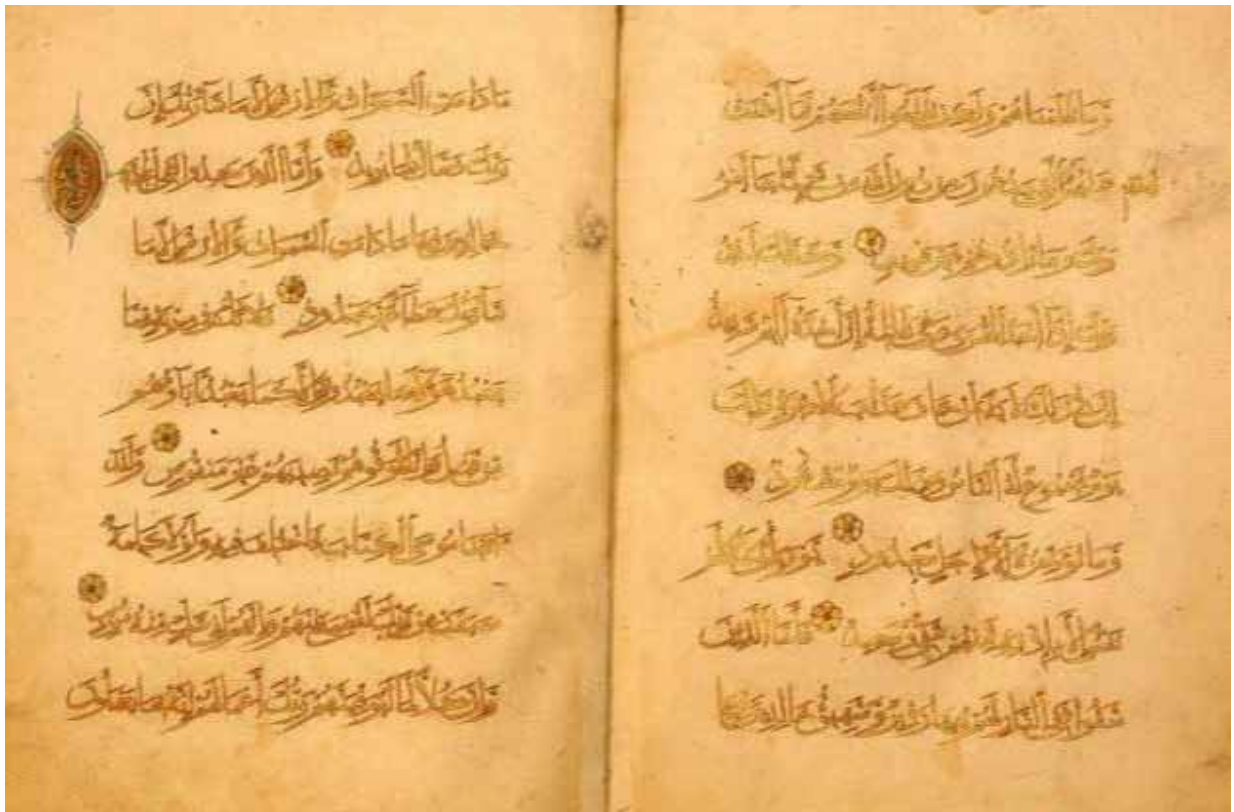 وما ظلمناهم ولكن ظلموا أنفسهم فما أغنت
عنهم آلهتهم التي يدعون من دون الله من شيء لما جاء أمر
ربك وما زادوهم غير تتبيب وكذلك أخذ
ربك إذا أخذ القرى وهي ظالمة إن أخذه أليم شديد
إن في ذلك لآية لمن خاف عذاب الآخرة ذلك
يوم مجموع له الناس وذلك يوم مشهود
وما نؤخره إلا لأجل معدود يوم يأتي لا تكلم
نفس إلا بإذنه فمنهم شقي وسعيد فأما الذين
شقوا ففي النار لهم فيها زفير وشهيق خالدين فيها
ما دامت السموات والأرض إلا ما شاء ربك إن
ربك فعال لما يريد وأما الذين سعدوا ففي الجنة
خالدين فيها ما دامت السموات والأرض إلا ما
شاء ربك عطاء غير مجذوذ فلا تك في مرية مما
يعبد هؤلاء ما يعبدون إلا كما يعبد آباؤهم
من قبل وإنا لموفوهم نصيبهم غير منقوص ولقد
آتينا موسى الكتاب فاختلف فيه ولولا كلمة
سبقت من ربك لقضي بينهم وإنهم لفي شك منه مريب
وإن كلا لما ليوفينهم ربك أعمالهم إنه بما يعملون